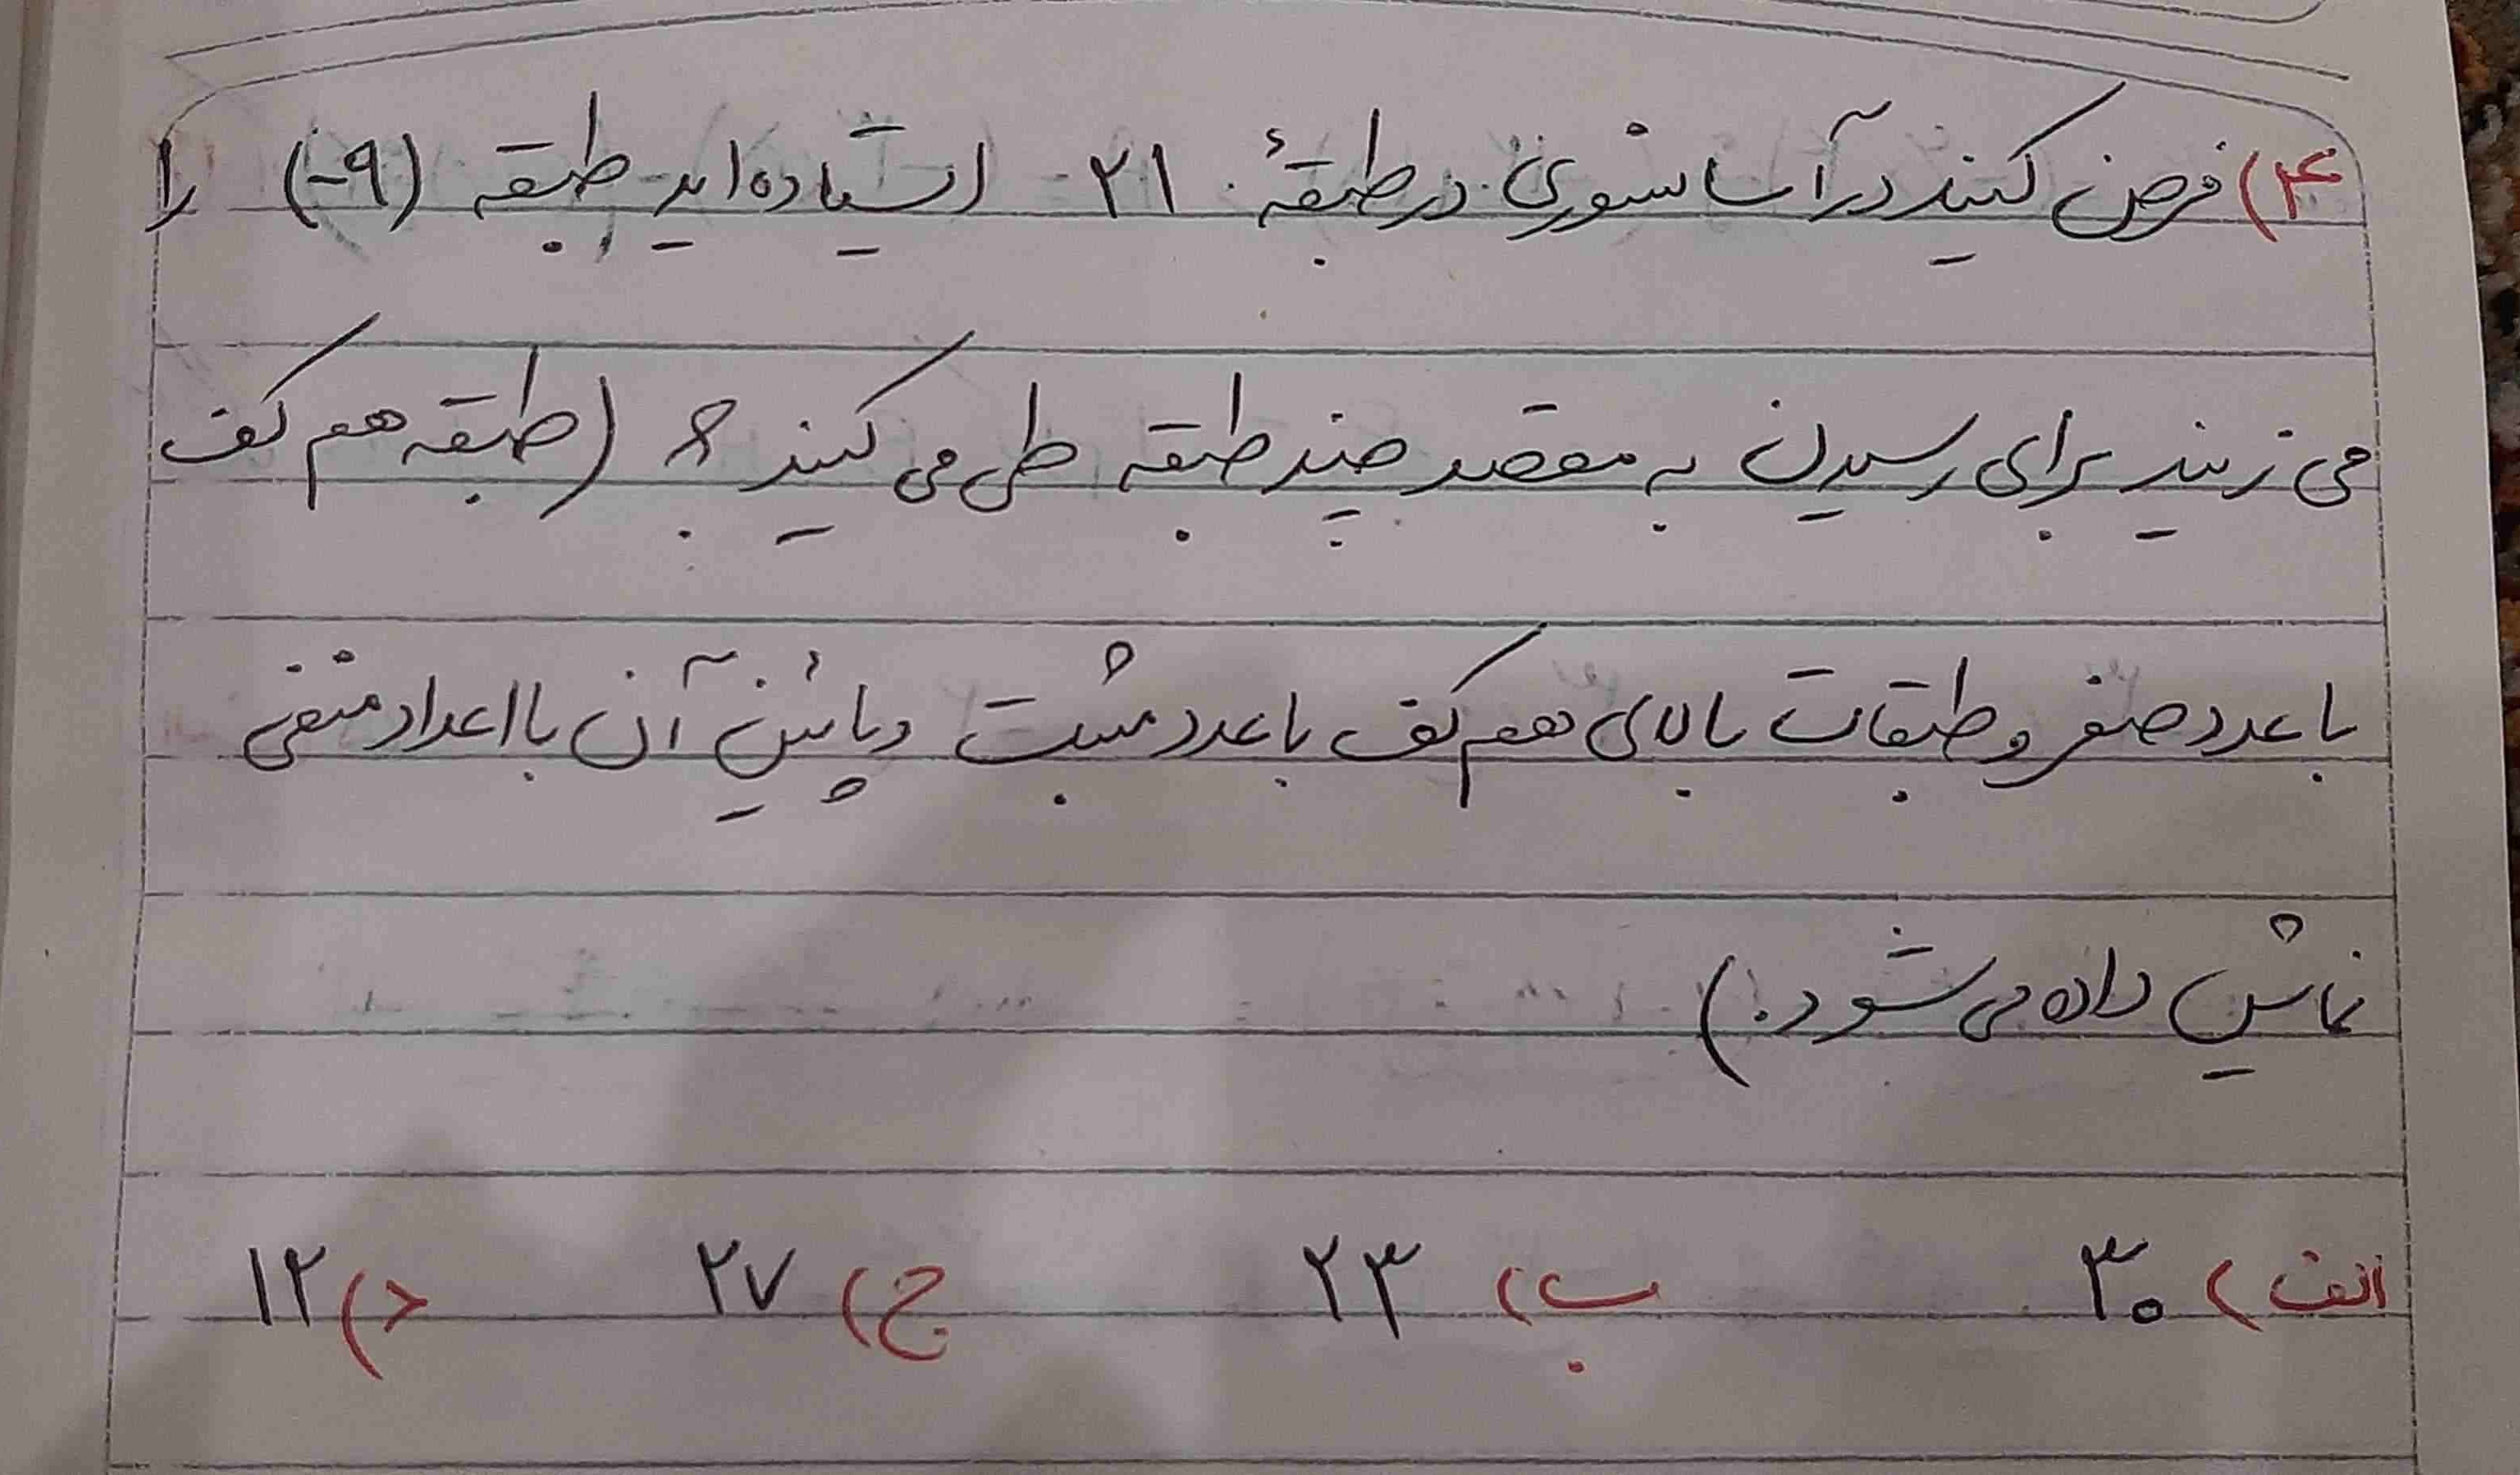 ۴) فرض کنید در آسانسوری در طبقهٔ ۲۱ ایستاده‌اید طبقه (۹-) را
می زنید برای رسیدن به مقصد چند طبقه طی می کنید؟ (طبقه هم کف
با عدد صفر و طبقات بالای هم کف با عدد مثبت و پائین آن با اعداد منفی
نمایش داده می شود.)
الف) ۳۰ ب) ۲۳ ج) ۲۷ د) ۱۲